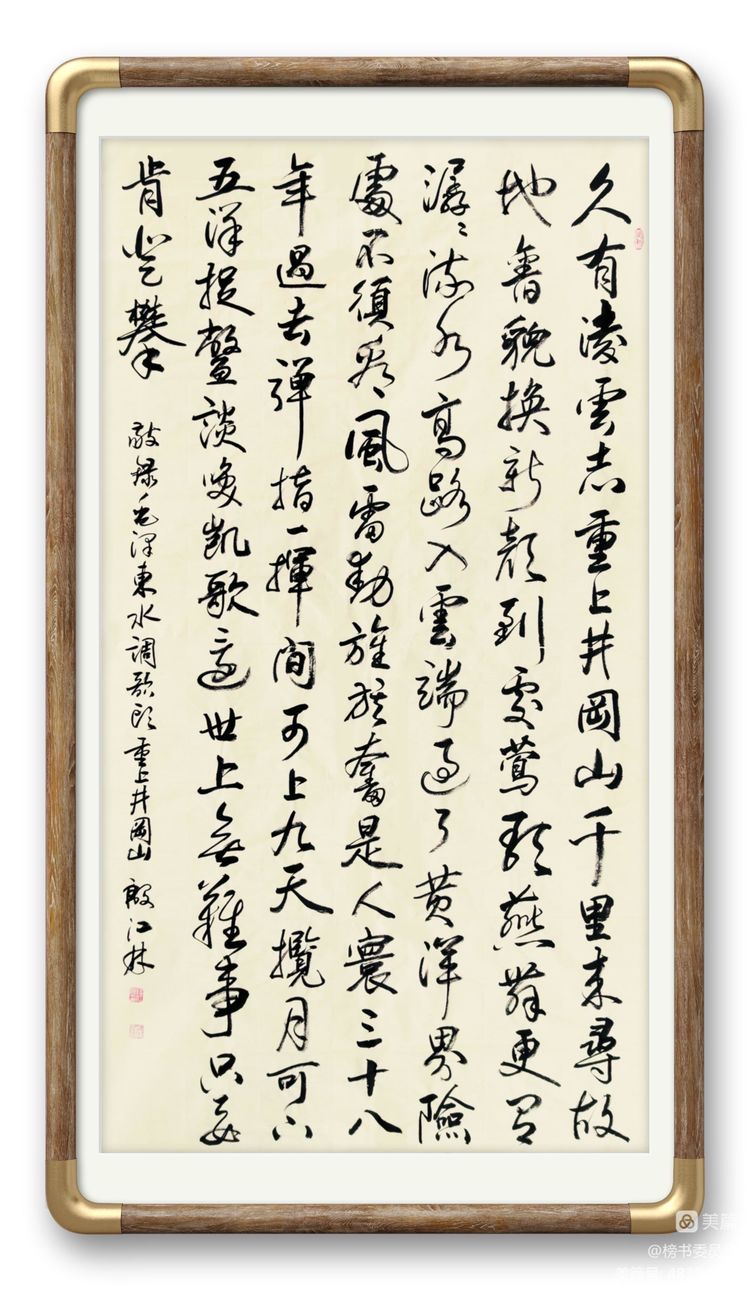 久有淩雲志重上井岡山千里来尋故
地舊貌換新顔到處鶯歌燕舞更有
潺〻流水高路入雲端過了黄洋界險
處不須看〻風雷動旌旗奮是人寰三十八
年過去彈指一揮間可上九天攬月可下
五洋捉鱉談笑凱歌還世上無難事只要
肯登攀
敬録毛澤東水調歌頭重上井岡山 殷江林
美篇
@榜书委员